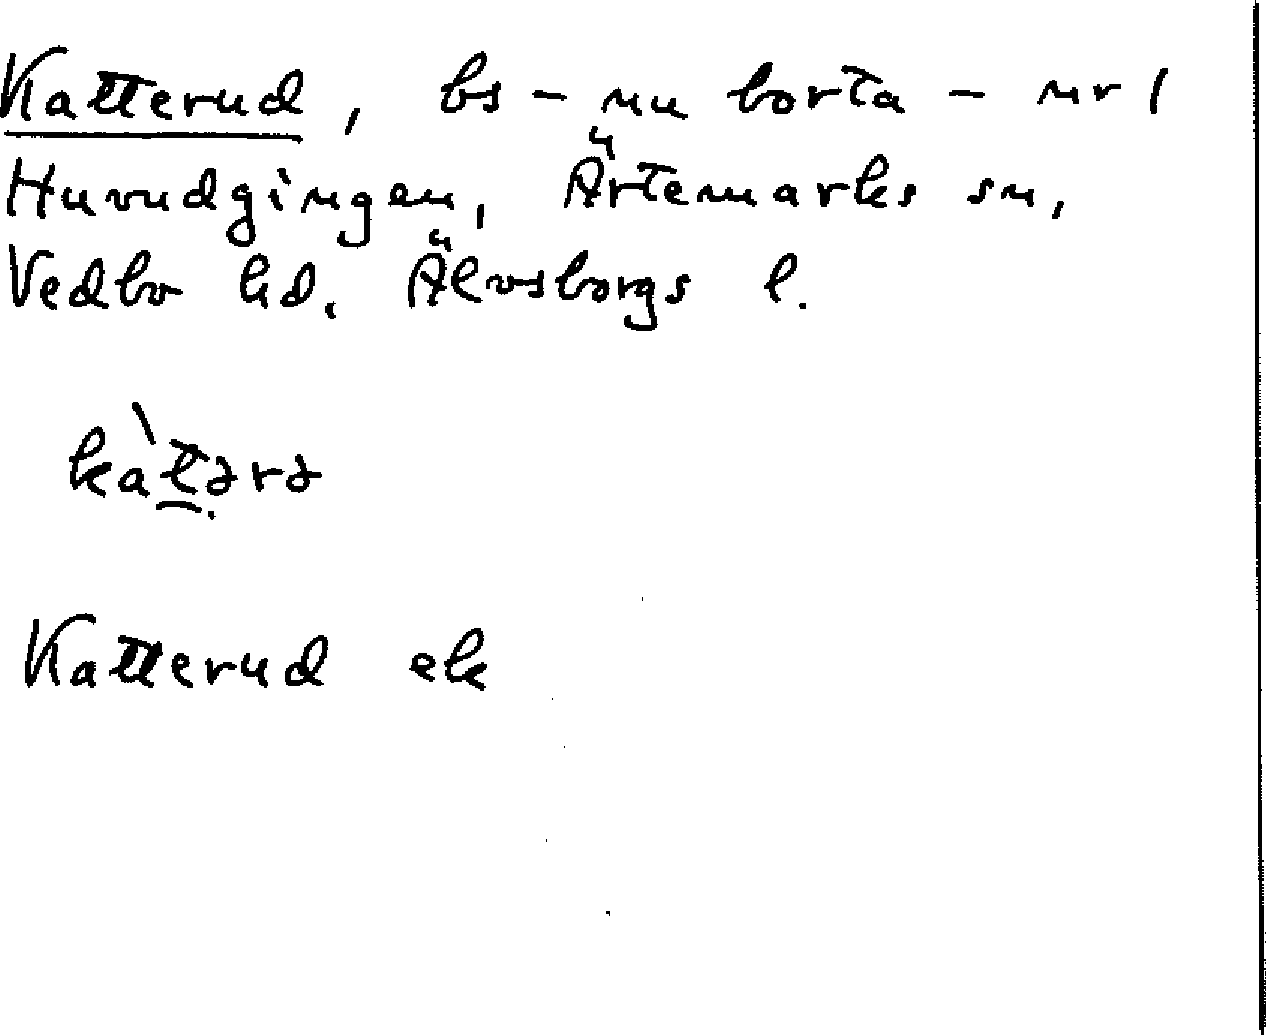 Katterud, bs - nu borta - nr 1
Huvudgingen, Ärtemarks sn,
Vedbo hd. Älvsborgs l.
kàt̠ərə
Katterud ek